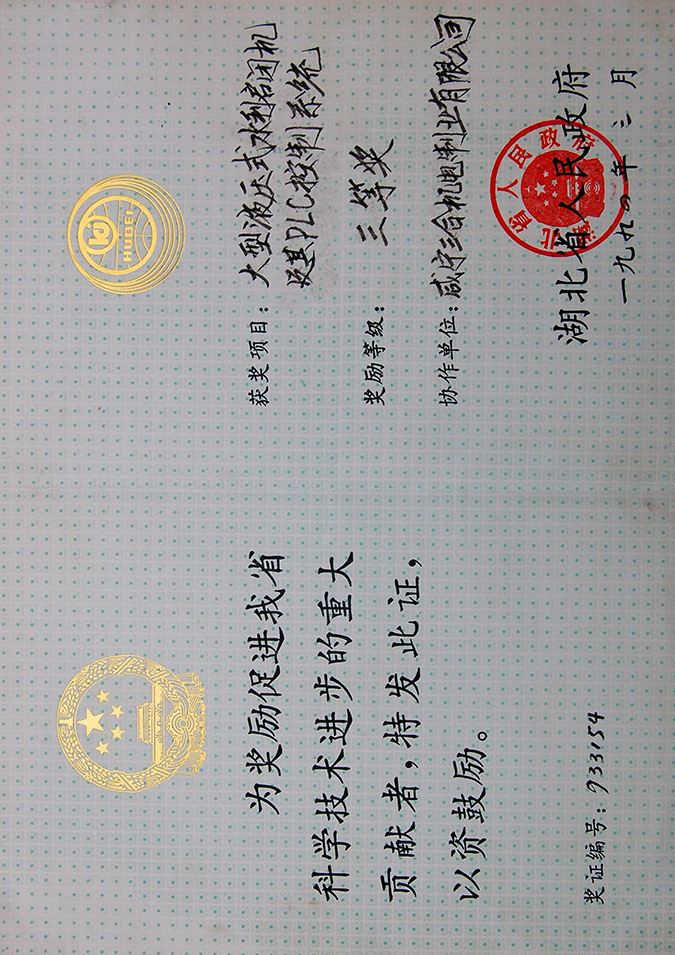 为奖励促进我省
科学技术进步的重大
贡献者，特发此证，
以资鼓励。
奖证编号：933154
HUBEI
获奖项目：大型液压式水利启闭机
及其PLC控制系统
奖励等级：三等奖
协作单位：咸宁三合机电制业有限公司
湖北省人民政府
湖北省人民政府
一九九四年三月